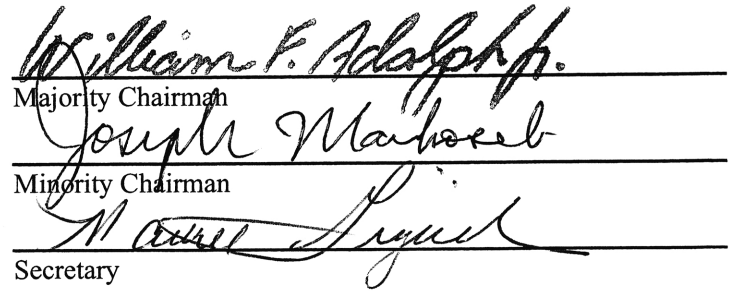 William F. Adolph Jr.
Majority Chairman
Joseph
Minority Chairman
Secretary